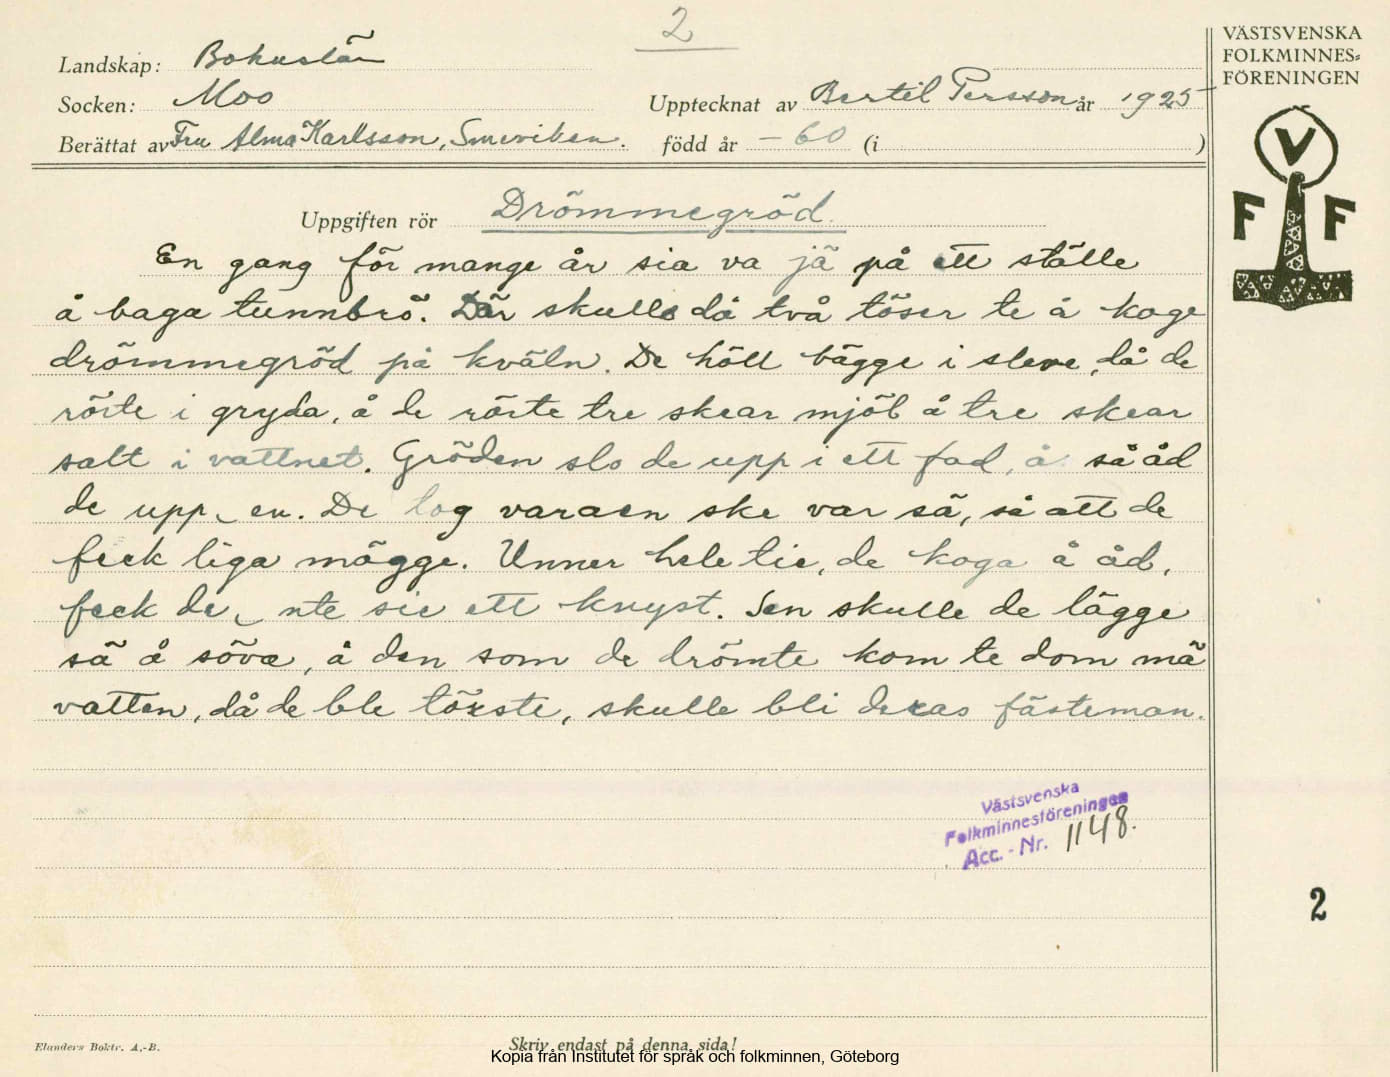 2
Landskap: Bohuslän
Socken: Moo
Upptecknat av Bertil Persson år 1925
Berättat av Fru Alma Karlsson, Smeviken.
född år – 60 (i )
VÄSTSVENSKA
FOLKMINNES=
FÖRENINGEN
V
F F
Uppgiften rör Drömmegröd.
En gang för mange år sia va jä på ett ställe
å baga tunnbrö. Där skulle då två töser te å koge
drömmegröd på kväln. De höll bägge i sleve, då de
rörte i gryda, å de rörte tre skear mjöl å tre skear
salt i vattnet. Gröden slo de upp i ett fad, å så åd
de upp en. De tog varaen ske var sä, så att de
feck liga mägge. Unner hele tie, de koga å åd,
feck de nte sie ett knyst. Sen skulle de lägge
sä å söva, å den som de drömte kom te dom mä
vatten, då de ble törste, skulle bli deras fästeman.
Västsvenska
Folkminnesföreningen
Acc. - Nr. 1148.
2
Elanders Boktr. A.-B.
Skriv endast på denna sida!
Kopia från Institutet för språk och folkminnen, Göteborg